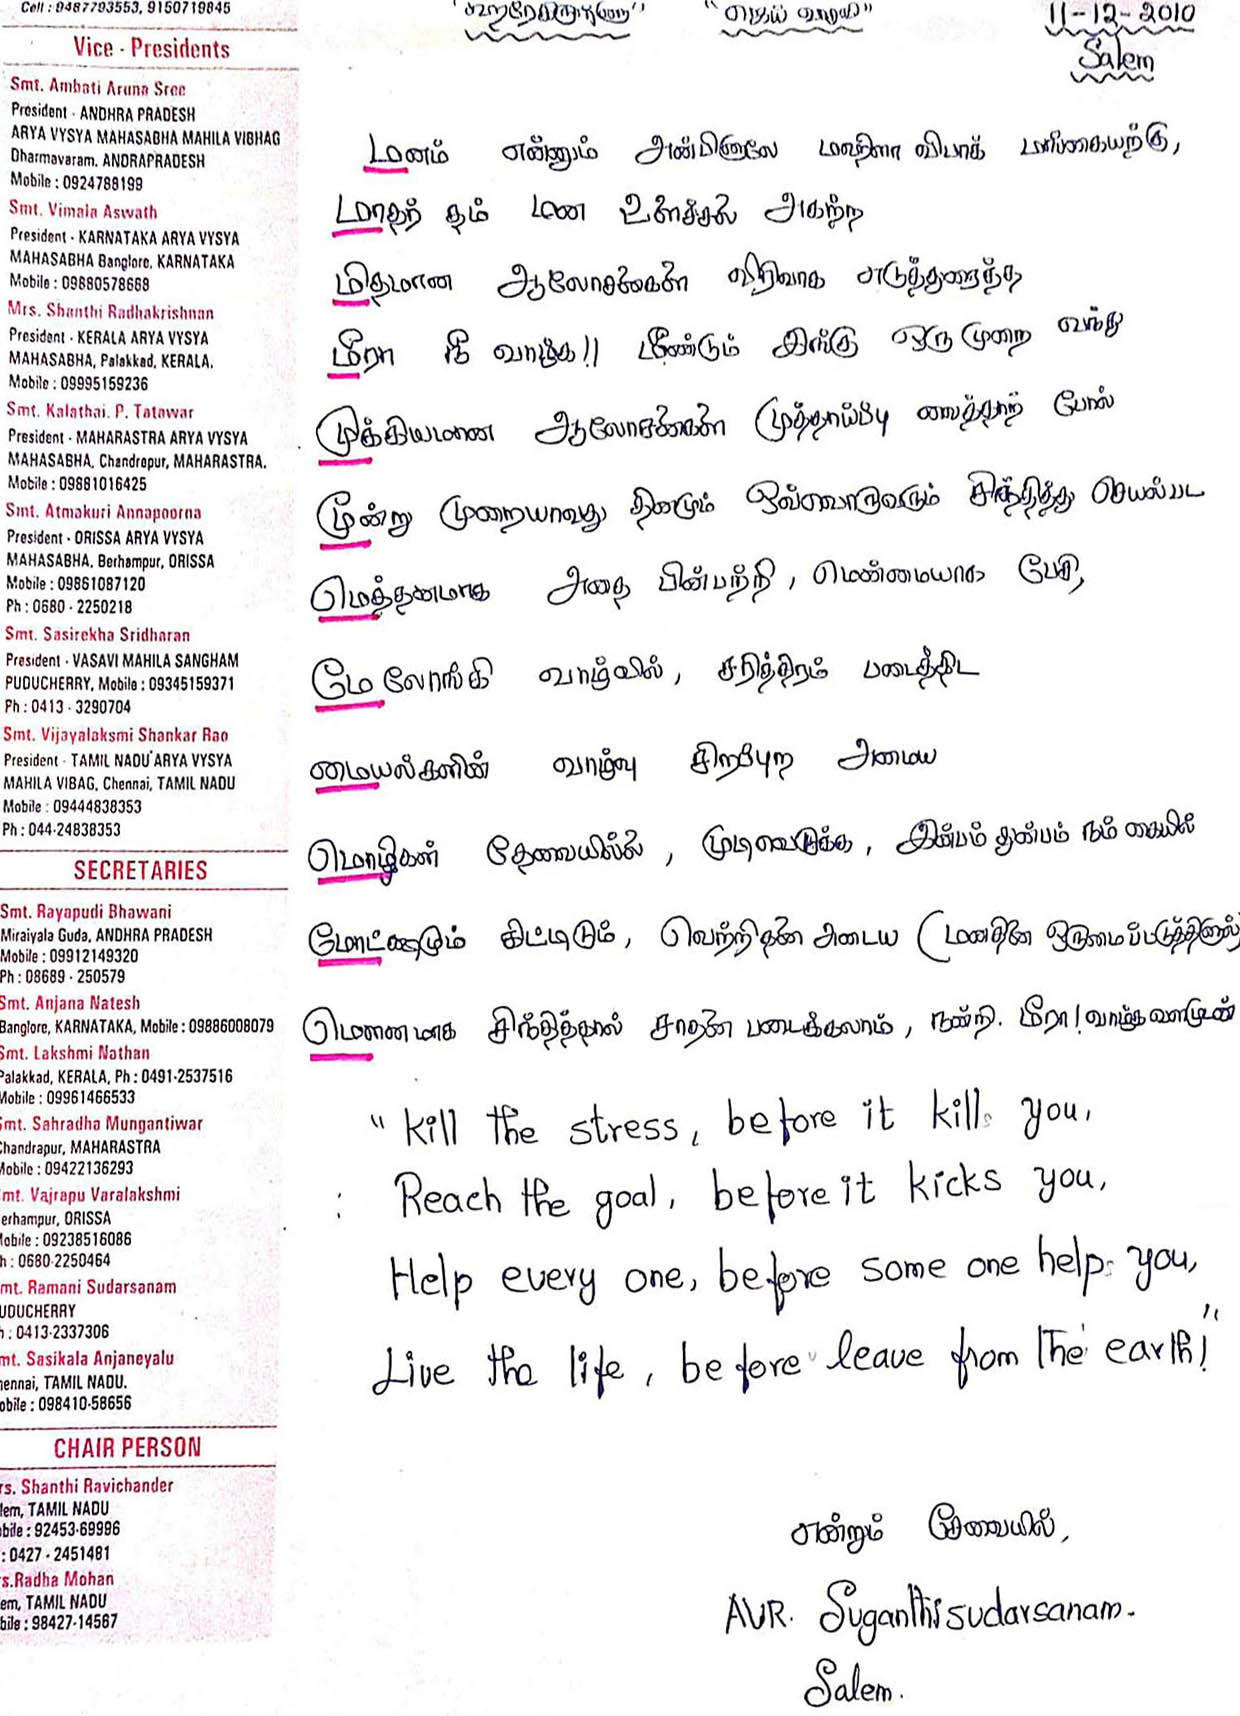 Cell : 9487793553, 9150719845
Vice - Presidents
Smt. Ambati Aruna Sree
President - ANDHRA PRADESH
ARYA VYSYA MAHASABHA MAHILA VIBHAG
Dharmavaram. ANDRAPRADESH
Mobile : 0924788199
Smt. Vimala Aswath
President - KARNATAKA ARYA VYSYA
MAHASABHA Banglore. KARNATAKA
Mobile : 09880578668
Mrs. Shanthi Radhakrishnan
President - KERALA ARYA VYSYA
MAHASABHA, Palakkad, KERALA.
Mobile : 09995159236
Smt. Kalathai. P. Tatawar
President - MAHARASTRA ARYA VYSYA
MAHASABHA, Chandrapur, MAHARASTRA.
Mobile : 09881016425
Smt. Atmakuri Annapoorna
President - ORISSA ARYA VYSYA
MAHASABHA, Berhampur, ORISSA
Mobile : 09861087120
Ph : 0680 - 2250218
Smt. Sasirekha Sridharan
President - VASAVI MAHILA SANGHAM
PUDUCHERRY, Mobile : 09345159371
Ph : 0413 - 3290704
Smt. Vijayalaksmi Shankar Rao
President - TAMIL NADU ARYA VYSYA
MAHILA VIBAG, Chennai, TAMIL NADU
Mobile : 09444838353
Ph : 044-24838353
SECRETARIES
Smt. Rayapudi Bhawani
Miraiyala Guda, ANDHRA PRADESH
Mobile : 09912149320
Ph : 08689 - 250579
Smt. Anjana Natesh
Banglore, KARNATAKA, Mobile : 09886008079
Smt. Lakshmi Nathan
Palakkad, KERALA, Ph : 0491-2537516
Mobile : 09961466533
Smt. Sahradha Mungantiwar
Chandrapur, MAHARASTRA
Mobile : 09422136293
mt. Vajrapu Varalakshmi
erhampur, ORISSA
obile : 09238516086
h : 0680-2250464
mt. Ramani Sudarsanam
UDUCHERRY
h : 0413-2337306
mt. Sasikala Anjaneyalu
ennai, TAMIL NADU.
obile : 098410-58656
CHAIR PERSON
rs. Shanthi Ravichander
lem, TAMIL NADU
bile : 92453-69996
: 0427 - 2451481
s.Radha Mohan
em, TAMIL NADU
bile : 98427-14567
11-12-2010
Salem
மனம் என்னும் அன்பினாலே மஹிளா விபாக்
மாதர் தம் மன உளச்சல் அகற்ற
மிதமான ஆலோசனைகள் விரிவாக எடுத்துரைத்த
மீரா நீ வாழ்க!! மீண்டும் இங்கு ஒரு முறை வந்து
முக்கியமான ஆலோசனைகள் முத்தாய்ப்பு வைத்தாற் போல்
மூன்று முறையாவது தினமும் ஒவ்வொருவரும் சிந்தித்து செயல்பட
மெத்தனமாக அதை பின்பற்றி, மென்மையாக பேசி,
மேலோங்கி வாழ்வில், சரித்திரம் படைத்திட
மையல்களின் வாழ்வு சிறப்புற அமைய
மொழிகள் தேவையில்லை, முடிவெடுக்க, இன்பம் துன்பம் நம் கையில்
மோட்சமும் கிட்டிடும், வெற்றிதனை அடைய (மனதினை ஒருமைப்படுத்தினால்)
மௌனமாக சிந்தித்தால் சாதனை படைக்கலாம், நன்றி. மீரா! வாழ்க வளமுடன்
"Kill the stress, before it kills you,
Reach the goal, before it kicks you,
Help every one, before some one helps you,
Live the life, before leave from the earth!"
என்றும் சேவையில்,
AVR. Suganthisudarsanam.
Salem.